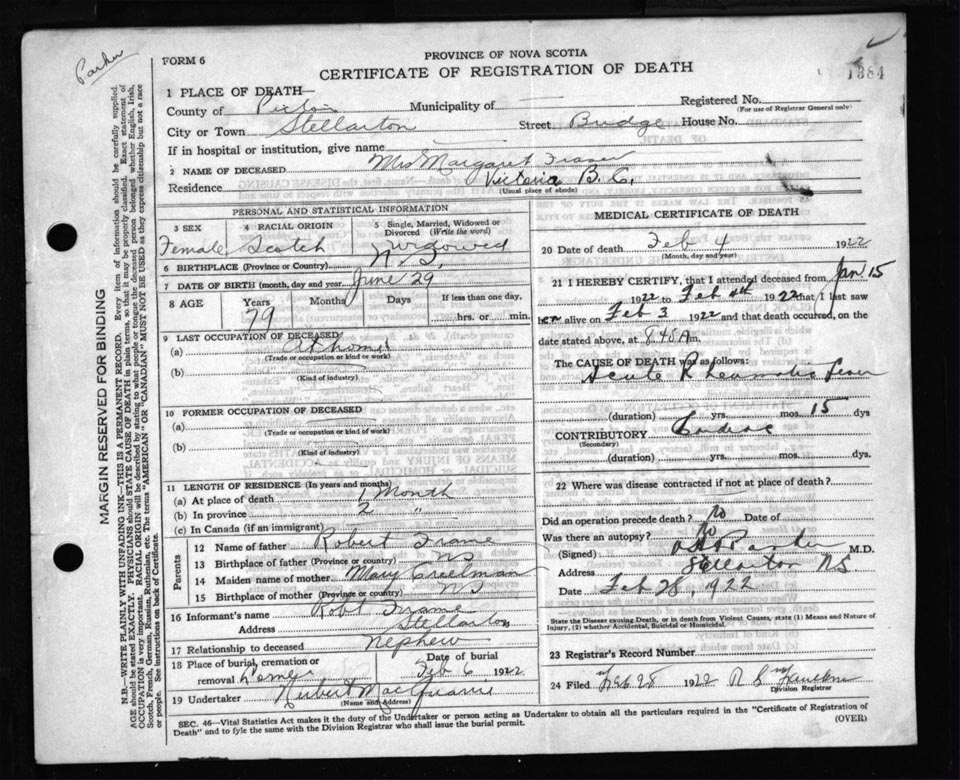 Parker
FORM 6
PROVINCE OF NOVA SCOTIA
CERTIFICATE OF REGISTRATION OF DEATH
1384
1 PLACE OF DEATH—
County of Pictou Municipality of — Registered No.
(For use of Registrar General only)
City or Town Stellarton Street Bridge House No.
If in hospital or institution, give name
2 NAME OF DECEASED Mrs Margaret Fraser
Residence Victoria B.C.
(Usual place of abode)
PERSONAL AND STATISTICAL INFORMATION
3 SEX 4 RACIAL ORIGIN 5 Single, Married, Widowed or Divorced (Write the word)
Female Scotch Widowed
6 BIRTHPLACE (Province or Country) N.S.
7 DATE OF BIRTH (month, day and year) June 29
8 AGE Years Months Days If less than one day,
79 hrs. or min.
9 LAST OCCUPATION OF DECEASED
(a) At home
(Trade or occupation or kind or work)
(b)
(Kind of industry)
10 FORMER OCCUPATION OF DECEASED
(a)
(Trade or occupation or kind of work)
(b)
(Kind of industry)
11 LENGTH OF RESIDENCE (In years and months)
(a) At place of death 1 Month
(b) In province 2 "
(c) In Canada (if an immigrant)
Parents
12 Name of father Robert Frame
13 Birthplace of father (Province or country) NS
14 Maiden name of mother Mary Creelman
15 Birthplace of mother (Province or country) NS
16 Informant's name Robt Frame
Address Stellarton
17 Relationship to deceased Nephew
18 Place of burial, cremation or removal Date of burial
Feb 6 1922
19 Undertaker
(Name and Address)
MEDICAL CERTIFICATE OF DEATH
20 Date of death Feb 4 1922
(Month, day and year)
21 I HEREBY CERTIFY, that I attended deceased from Jan 15
1922 to Feb 4th 1922 that I last saw
her alive on Feb 3 1922 and that death occurred, on the
date stated above, at 8.45 A m.
The CAUSE OF DEATH was as follows:
Acute Rheumatic fever
(duration) yrs. mos. 15 dys
CONTRIBUTORY Cardiac
(Secondary)
(duration) yrs. mos. dys
22 Where was disease contracted if not at place of death?
Did an operation precede death? No Date of
Was there an autopsy? No
(Signed) Parker M.D.
Address Stellarton N.S.
Date Feb 28, 1922
State the Disease causing Death, or in death from Violent Causes, state (1) Means and Nature of Injury, (2) whether Accidental, Suicidal or Homicidal.
23 Registrar's Record Number
24 Filed Feb 28 1922
Division Registrar
SEC. 46—Vital Statistics Act makes it the duty of the Undertaker or person acting as Undertaker to obtain all the particulars required in the "Certificate of Registration of
Death" and to fyle the same with the Division Registrar who shall issue the burial permit. (OVER)
MARGIN RESERVED FOR BINDING
N.B.—WRITE PLAINLY WITH UNFADING INK—THIS IS A PERMANENT RECORD. Every item of information should be carefully supplied.
AGE should be stated EXACTLY. PHYSICIANS should STATE CAUSE OF DEATH in plain terms, so that it may be properly classified. Exact statement of
OCCUPATION is very important. RACIAL ORIGIN will be described by stating to what people or tongue the deceased person belonged whether English, Irish,
Scotch, French, German, Russian, Ruthenian, etc. The terms "AMERICAN" OR "CANADIAN" MUST NOT BE USED as they express citizenship but not a race
or people. See instructions on back of Certificate.